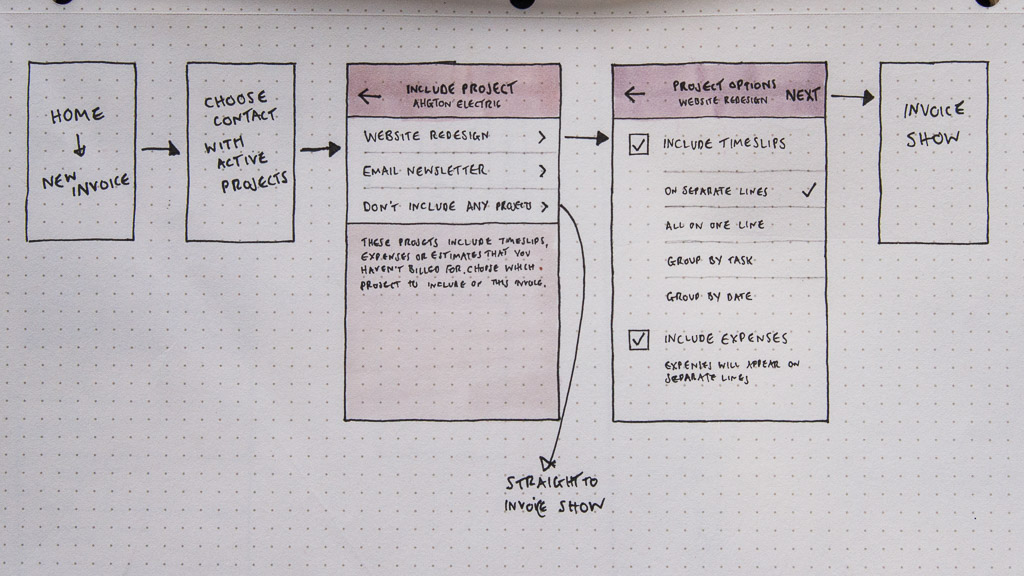 HOME
NEW INVOICE
CHOOSE
CONTACT
WITH
ACTIVE
PROJECTS
INCLUDE PROJECT
AHGTON ELECTRIC
WEBSITE REDESIGN
EMAIL NEWSLETTER
DON'T INCLUDE ANY PROJECTS
THESE PROJECTS INCLUDE TIMESLIPS,
EXPENSES OR ESTIMATES THAT YOU
HAVEN'T BILLED FOR. CHOOSE WHICH
PROJECT TO INCLUDE OF THIS INVOICE.
STRAIGHT TO
INVOICE SHOW
PROJECT OPTIONS
WEBSITE REDESIGN
NEXT
INCLUDE TIMESLIPS
ON SEPARATE LINES
ALL ON ONE LINE
GROUP BY TASK
GROUP BY DATE
INCLUDE EXPENSES
EXPENSES WILL APPEAR ON
SEPARATE LINES
INVOICE
SHOW